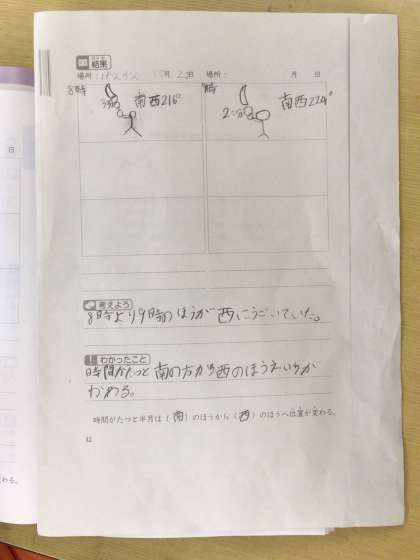 結果
場所：げんかん 10月22日 場所： 月 日
8時 南西216° 9時 南西224°
考えよう
8時より9時のほうが西にうごいていた。
わかったこと
時間がたつと南の方から西のほうえいちが
かわる。
時間がたつと半月は（南）のほうから（西）のほうへ位置が変わる。
42